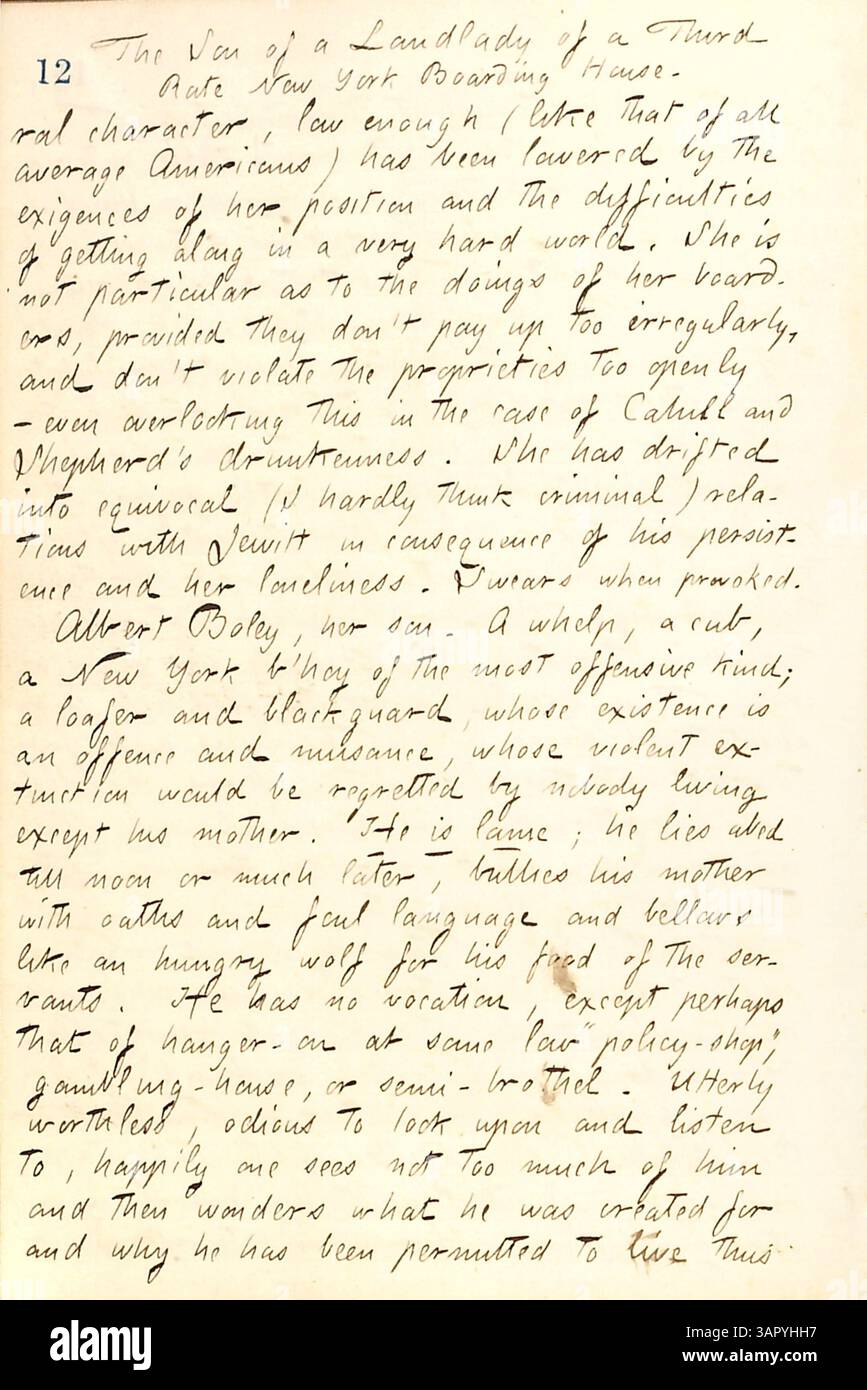 The Son of a Landlady of a Third
12
Rate New York Boarding House.
ral character, low enough (like that of all
average Americans) has been lowered by the
exigences of her position and the difficulties
of getting along in a very hard world. She is
not particular as to the doings of her board-
ers, provided they don't pay up too irregularly,
and don't violate the proprieties too openly
– even overlooking this in the case of Cahill and
Shepherd's drunkenness. She has drifted
into equivocal (I hardly think criminal) rela-
tions with Jewitt in consequence of his persist-
ence and her loneliness. Swears when provoked.
Albert Boley, her son. A whelp, a cub,
a New York b'hoy of the most offensive kind;
a loafer and blackguard, whose existence is
an offence and nuisance, whose violent ex-
tinction would be regretted by nobody living
except his mother. He is lame; he lies abed
till noon or much later, bullies his mother
with oaths and foul language and bellows
like an hungry wolf for his food of the ser-
vants. He has no vocation, except perhaps
that of hanger-on at some low "policy-shop",
gambling-house, or semi-brothel. Utterly
worthless, odious to look upon and listen
to, happily one sees not too much of him
and then wonders what he was created for
and why he has been permitted to live thus
alamy
Image ID: 3APYHH7
www.alamy.com